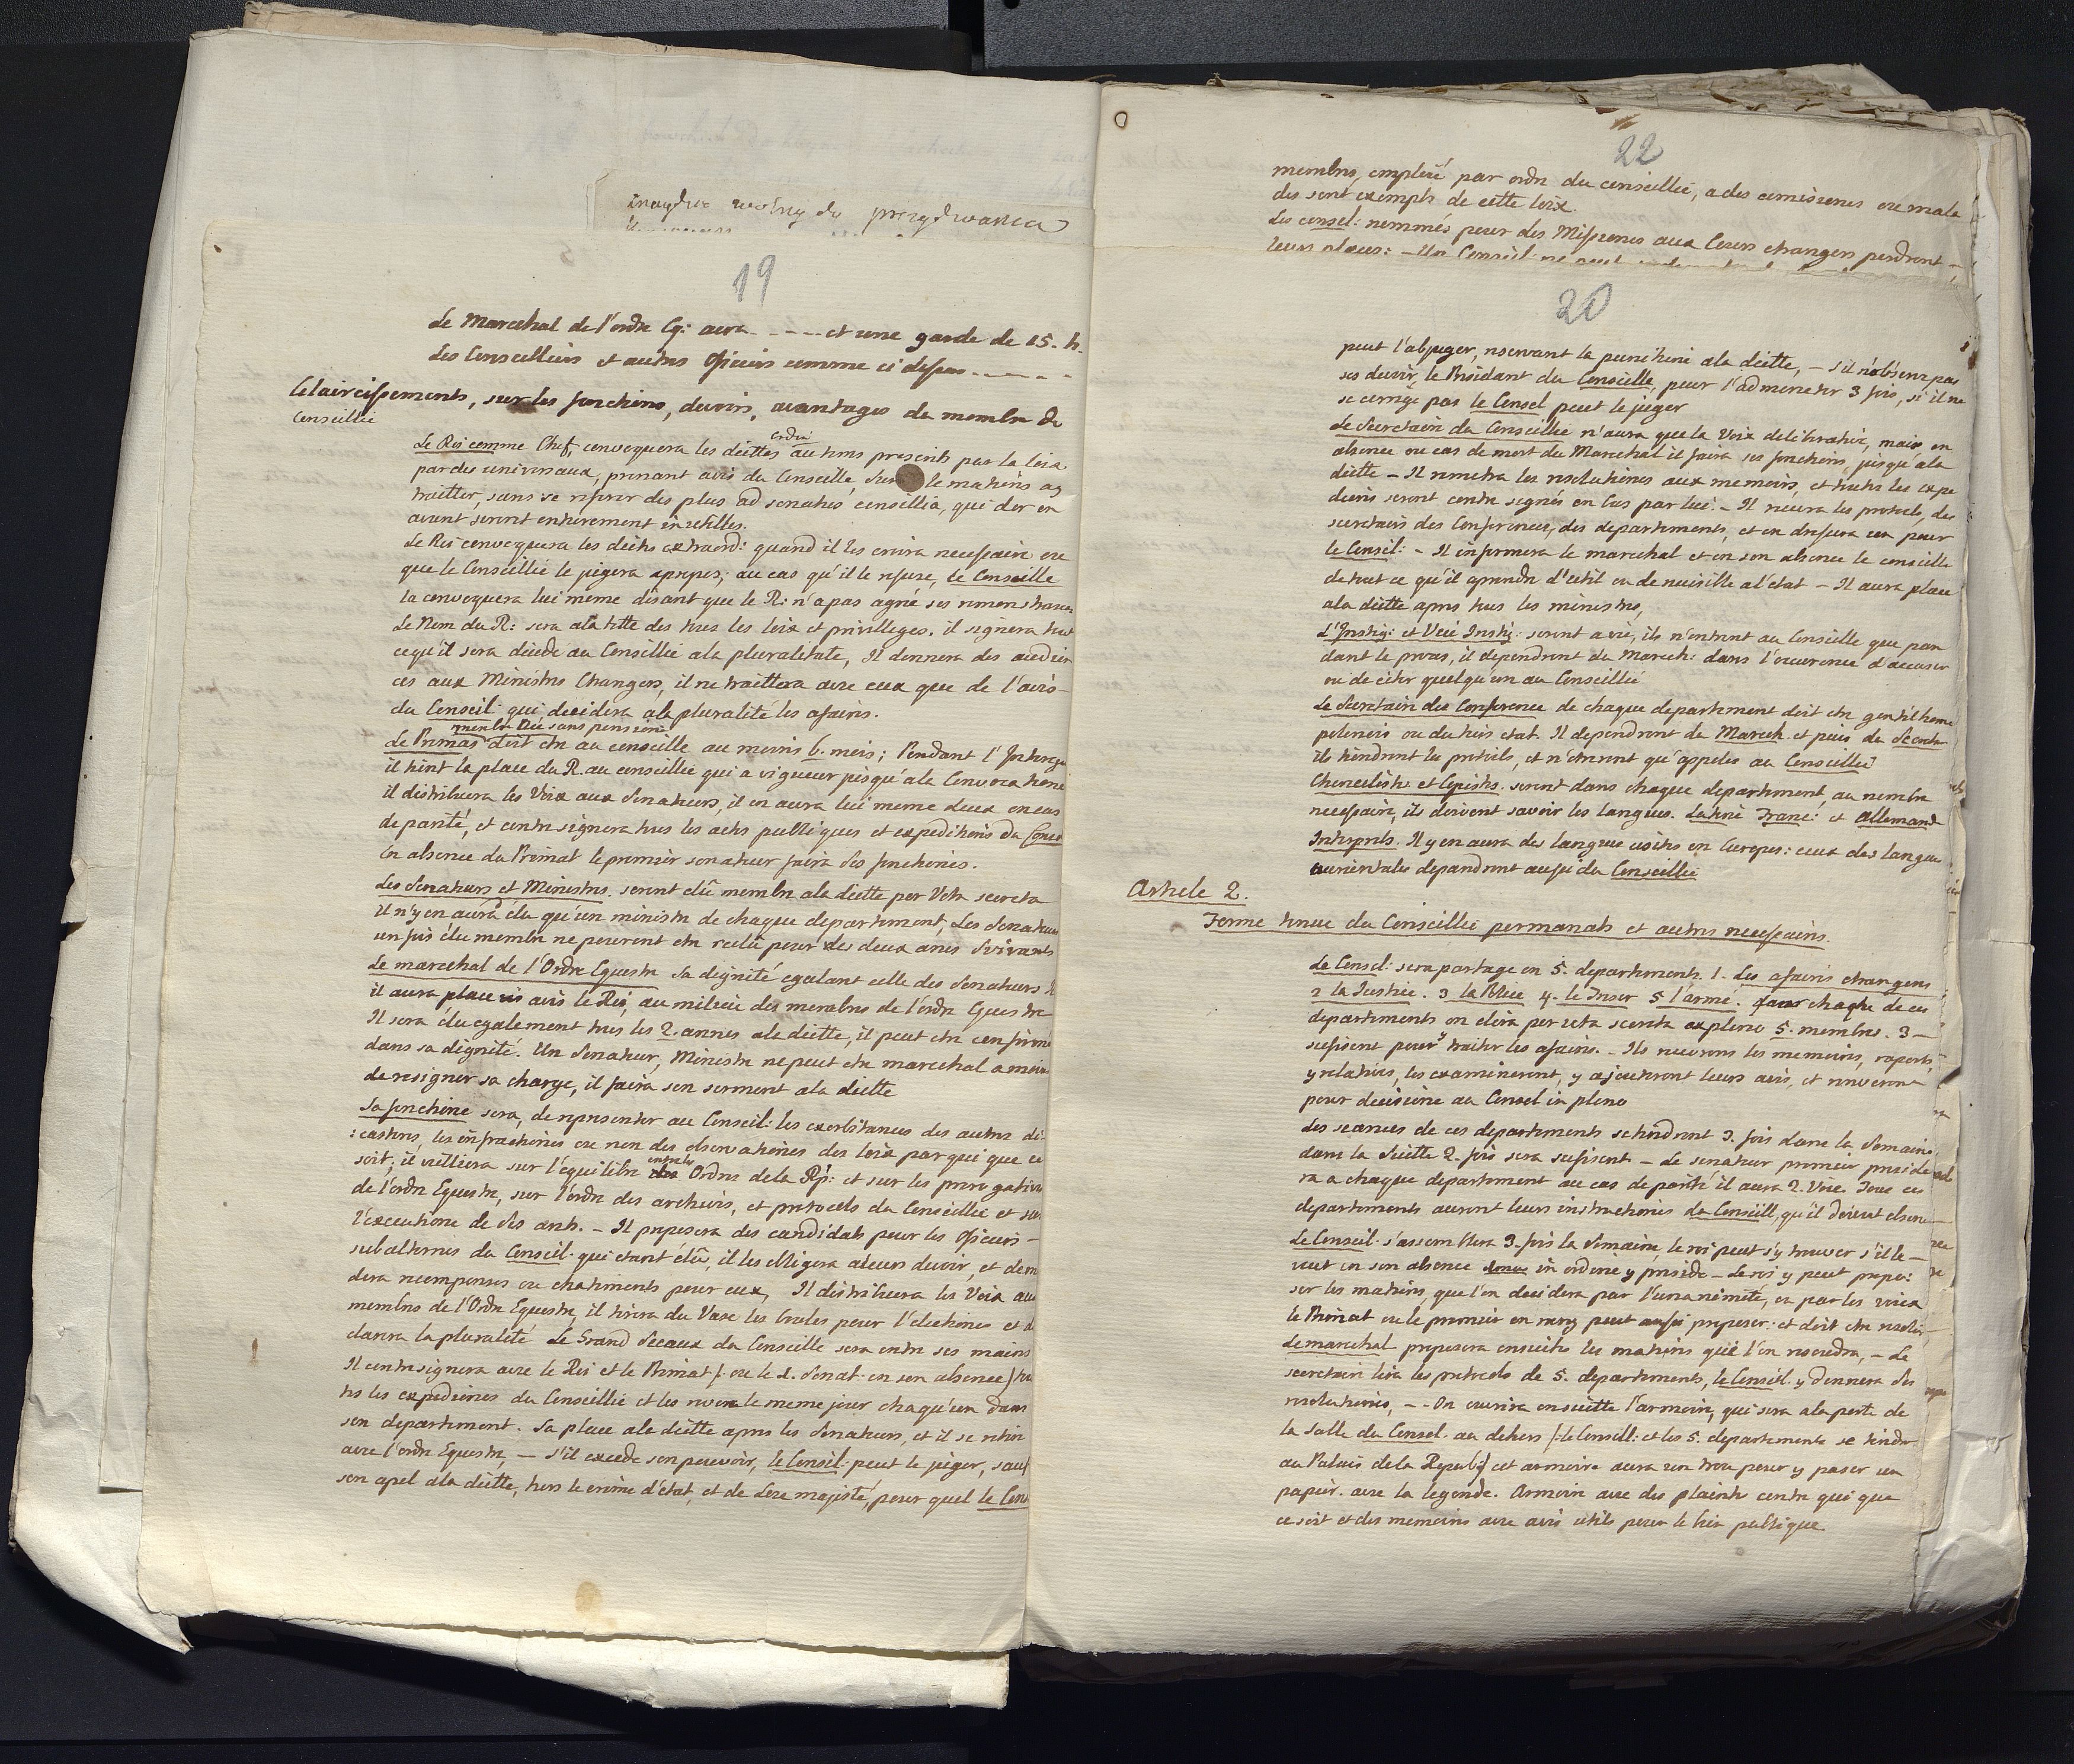 inaydzie wolny do przydwania
19
Le Marechal de l'ordre Eq: aura - - - - et une garde de 25. h.
Les Conseilleirs et autres oficiers comme ci dessus - - - -
Eclaircissements, sur les fonctions, devoirs, avantages de membre de
Conseillie
Le Roi comme Chef, convoquera les diettes ordin: au tems prescrits par la loix
par des universaux, prenant avis du Conseille sur le matieres a y
traitter, sans se referer des plus ad senatus consillia, qui dor en
avant seront entierement inutilles.
Le Roi convoquera les diettes extraord: quand il les croira necessaire ou
que le Conseillie le jugera apropos; au cas qu'il le refuse, le Conseille
la convoquera lui même disant que le R: n'a pas agrée ses remonstrances
Le Nom du R: sera a la tette des tous les loix et privilleges. il signera tout
ce qu'il sera décidé au Consillie a la pluralitate, Il donnera des audien
ces aux Ministres Etrangers, il ne traittera avec eux que de l'avis -
du Conseil: qui decidera a la pluralité les afaires.
membr née sans pensions
Le Primas doit etre au conseille au moins 6. mois; Pendant l'Interregn
il tient la place du R. au conseillie qui a vigueur jusqu'a la Convocations
il distribuera les Voix aux Senateurs, il en aura lui meme deux en cas
de parité, et contresignera tous les actes publiques et expeditions du Conseil
En absence du Primat le premier senateur faira ses fonctions.
Les Senateurs et Ministres. seront élû membre a la diette per Vota secreta
Il n'y en aura élu qu'un ministre de chaque departement, Les Senateurs
un fois élu membre ne peuvent etre reelû pour les deux anes suivants
Le marechal de l'Ordre Equestre Sa dignité egalant celle des Senateurs
il aura place vis avis le Roi, au milieu des membres de l'ordre Equestre
Il sera élu egalement tous les 2. annes a la diette, il peut etre confirmé
dans sa dignité. Un Senateur, Ministre ne peut etre marechal a moins
de resigner sa charge, il faira son serment a la diette
Sa fonctione sera, de representer au Conseil: les exorbitances des autres di-
:casteres, les infractiones ou non des observationes des loix par qui que ce
soit; il veillera sur l'equilibre entre les Ordres de la Rp: et sur les prerogatives
de l'ordre Equestre, sur l'ordre des archives, et protocols du Conseillie et sur
l'executione de ses arets. - Il proposera des candidats pour les Oficiers -
subalternes du Conseil. qui etant élû, il les obligera a leurs devoir, et dem
dera recompenses ou chatiments pour eux, Il distribuera les Voix aux
membres de l'Ordre Equestre, il tirera du Vase les boules pour l'elections et d
clarera la pluralité Le Grand Sceaux du Conseille sera entre ses mains
Il contresignera avec le Roi et le Primat /: ou le 1. Senat: en son absence / tou
tes les expeditions du Conseillie et les
son departement. Sa place a la diette apres les Senateurs, et il se retire
avec l'ordre Equestre, - S'il excede son pouvoir, le Consil: peut le juger, sauf
son apel a la diette, hors le crime d'etat, et de Leze majesté, pour quel le Cons
22
membres, emploié par ordre du conseillie, a des comissiones ou mala
des sont exempts de cette loix.
Les consel: nommés pour des Missiones aux Cours etrangers perdront -
leurs places: - Un Conseil: ne peut
20
peut l'abjuger, reservant la punitione a la diette, - s'il n'observe pas
ses devoir, le Président du Conseille, peut l'admoneter 3 fois, si il ne
se corrige pas le Consel peut le juger
Le Secretaire du Conseillie n'aura que la Voix deliberative, mais en
absence ou cas de mort du Marechal il faira ses fonctions, jusqu'a la
diette - Il remetra les resolutiones aux memoirs, et toutes les expe
dions seront contre signés en bas par lui. - Il recevra les protocols, des
secretairs des Conferences, des departements, et en dressera un pour
le Consil: - Il informera le marechal et en son absence le conseille
de tout ce qu'il aprendra d'util ou de nuisille a l'etat - Il aura place
a la diette apres tous les ministres,
L'Instig: et Vice Instig: seront a vie, ils n'entrent au Conseille que pen
dant le proces, il dependront du Marech: dans l'ocurence d'accuser
ou de citer quelqu'un au Conseillie
Le Secretaire des Conference de chaque departement doit etre gentilhome
polonois ou du tiers etat. Il dependront du Marech. et puis du Secret
ils tiendront les protcols, et n'entrent qu'appelés au Conseillié
Chancelistes et Copistes. seront dans chaque departement, au nombre
necessaire, ils doivent savoir les langues. Latine Franc: et Allemand
Interprets. Il y en aura des langues usités en Europe: ceux des langue
ourientales dependront aussi du Conseillie
Article 2.
Forme tenue du Conseillie permanats et autres necessaires.
Le Consel: sera partage en 5. departements. 1. Les afaires etrangers
2 la Justice. 3 la Police 4. le Tresor 5 l'armé. pour chaque de ces
departements on elira per vota secreta ex pleno 5. membres. 3 -
sufisent pour traiter les afaires. - Ils recevrons les memoirs, raports,
y relatives, les examineront, y ajouteront leurs avis, et renverront
pour decisione au Consel in pleno
Les seances de ces departements se tiendront 3. fois dans la Semaine,
dans la Suitte 2. fois sera sufisent - Le senateur premier preside
ra a chaque departement au cas de parité il aura 2. Voix. Tous ces
departements auront leurs instructiones du Conseill, qu'il doivent obser
Le Conseil. s'assemblera 3. fois la semaine, le roi peut s'y trouver s'il le -
veut en son absence in ordine y preside - Le roi y peut propo:
ser les matiers, que l'on decidera par l'unanimité, ou par les voix
le Primat ou le premier en rang peut aussi proposer: et doit etre resolu,
Le marechal proposera ensuite les matiers que l'on resoudra, - Le
secretaire lira les protocols de 5. departements, le Conseil. y donnera ses
resolutiones, - - On ouvrira ensuitte l'armoire, qui sera a la porte de
la Salle du Consel. au dehors /: le Conseill: et les 5. departements se tiendr
au Palais de la Repub:/ cet armoire aura un trou pour y passer un
papier. avec la legende. Armoire avec des plaints contre qui que
ce soit et des memoirs avec avis utils pour le bien publique.